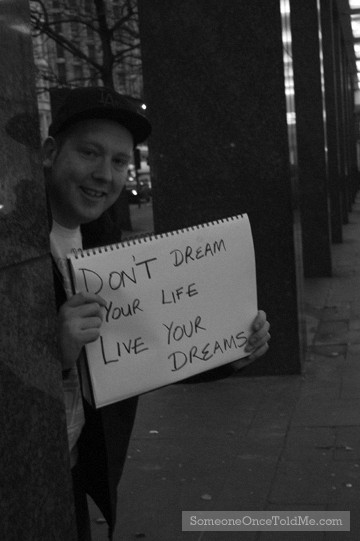 LA
DON'T DREAM
YOUR LIFE
LIVE YOUR
DREAMS
SomeoneOnceToldMe.com